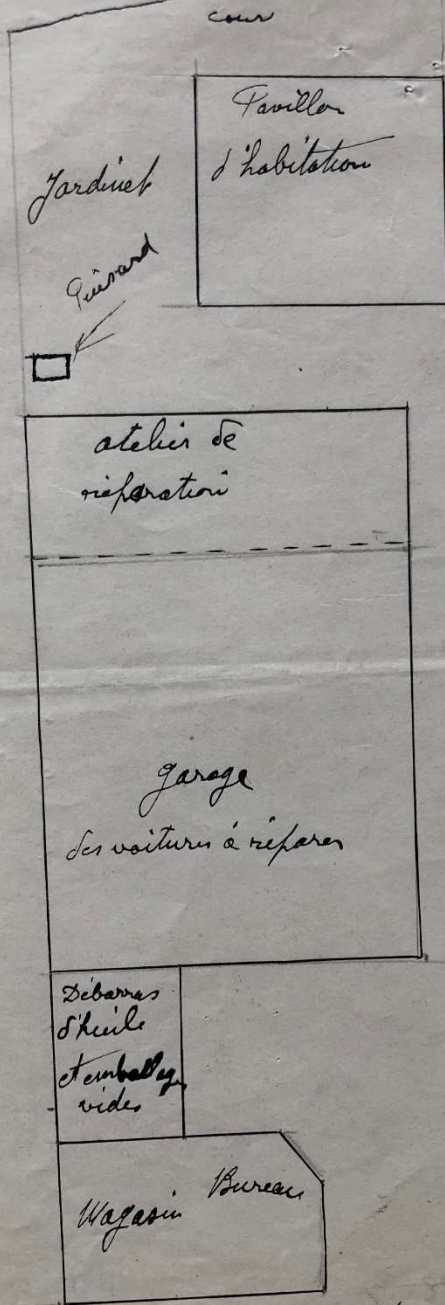 cour
Pavillon
d'habitation
Jardinet
Puisard
atelier de
réparation
garage
des voitures à réparer
Débarras
d'huile
et emballages
vides
Magasin Bureau